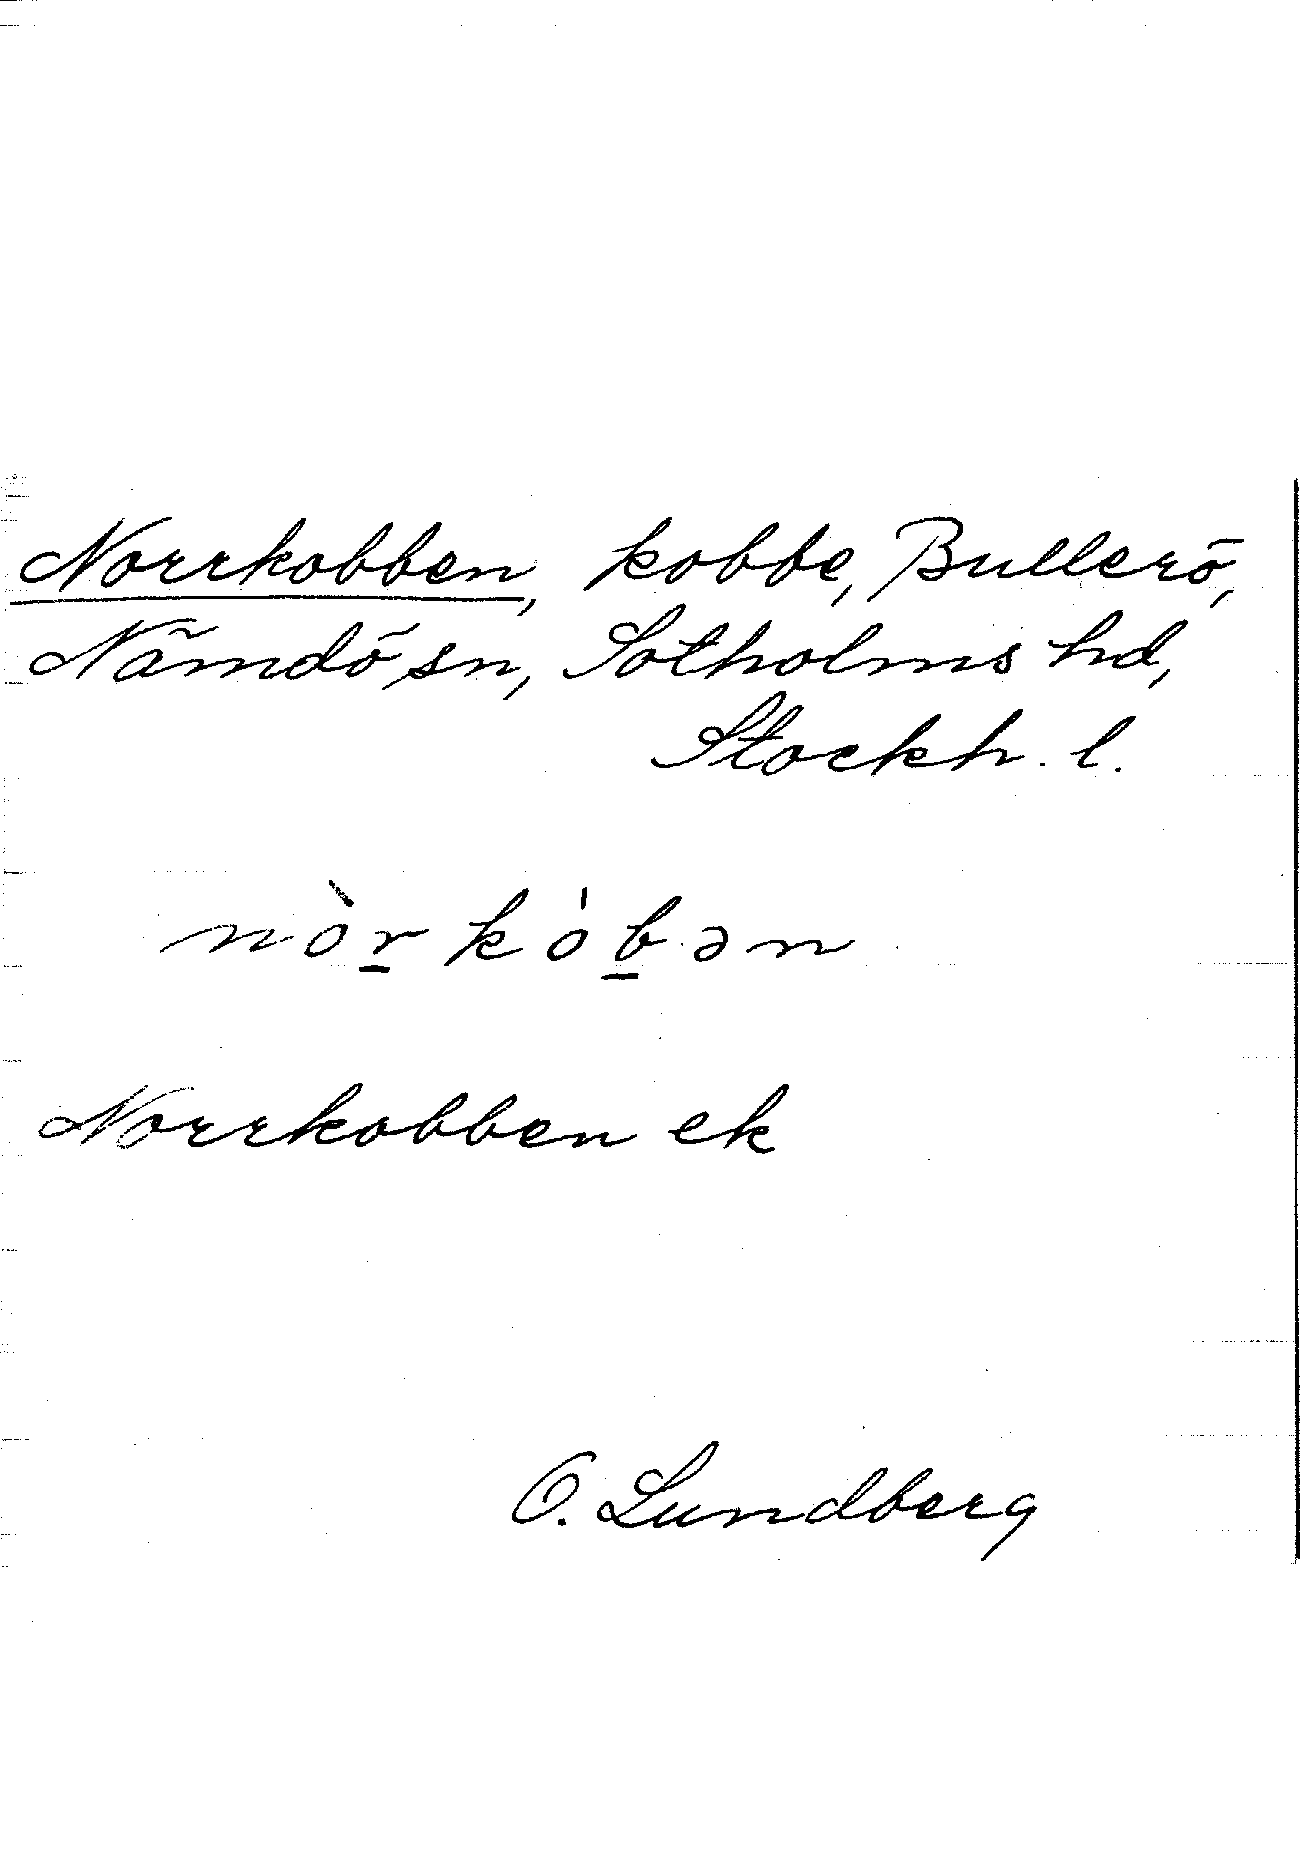 Norrkobben, kobbe, Bullerö,
Nämdö sn, Sotholms hd,
Stockh. l.
nòr̲kòb̲ən
Norrkobben ek
O. Lundberg